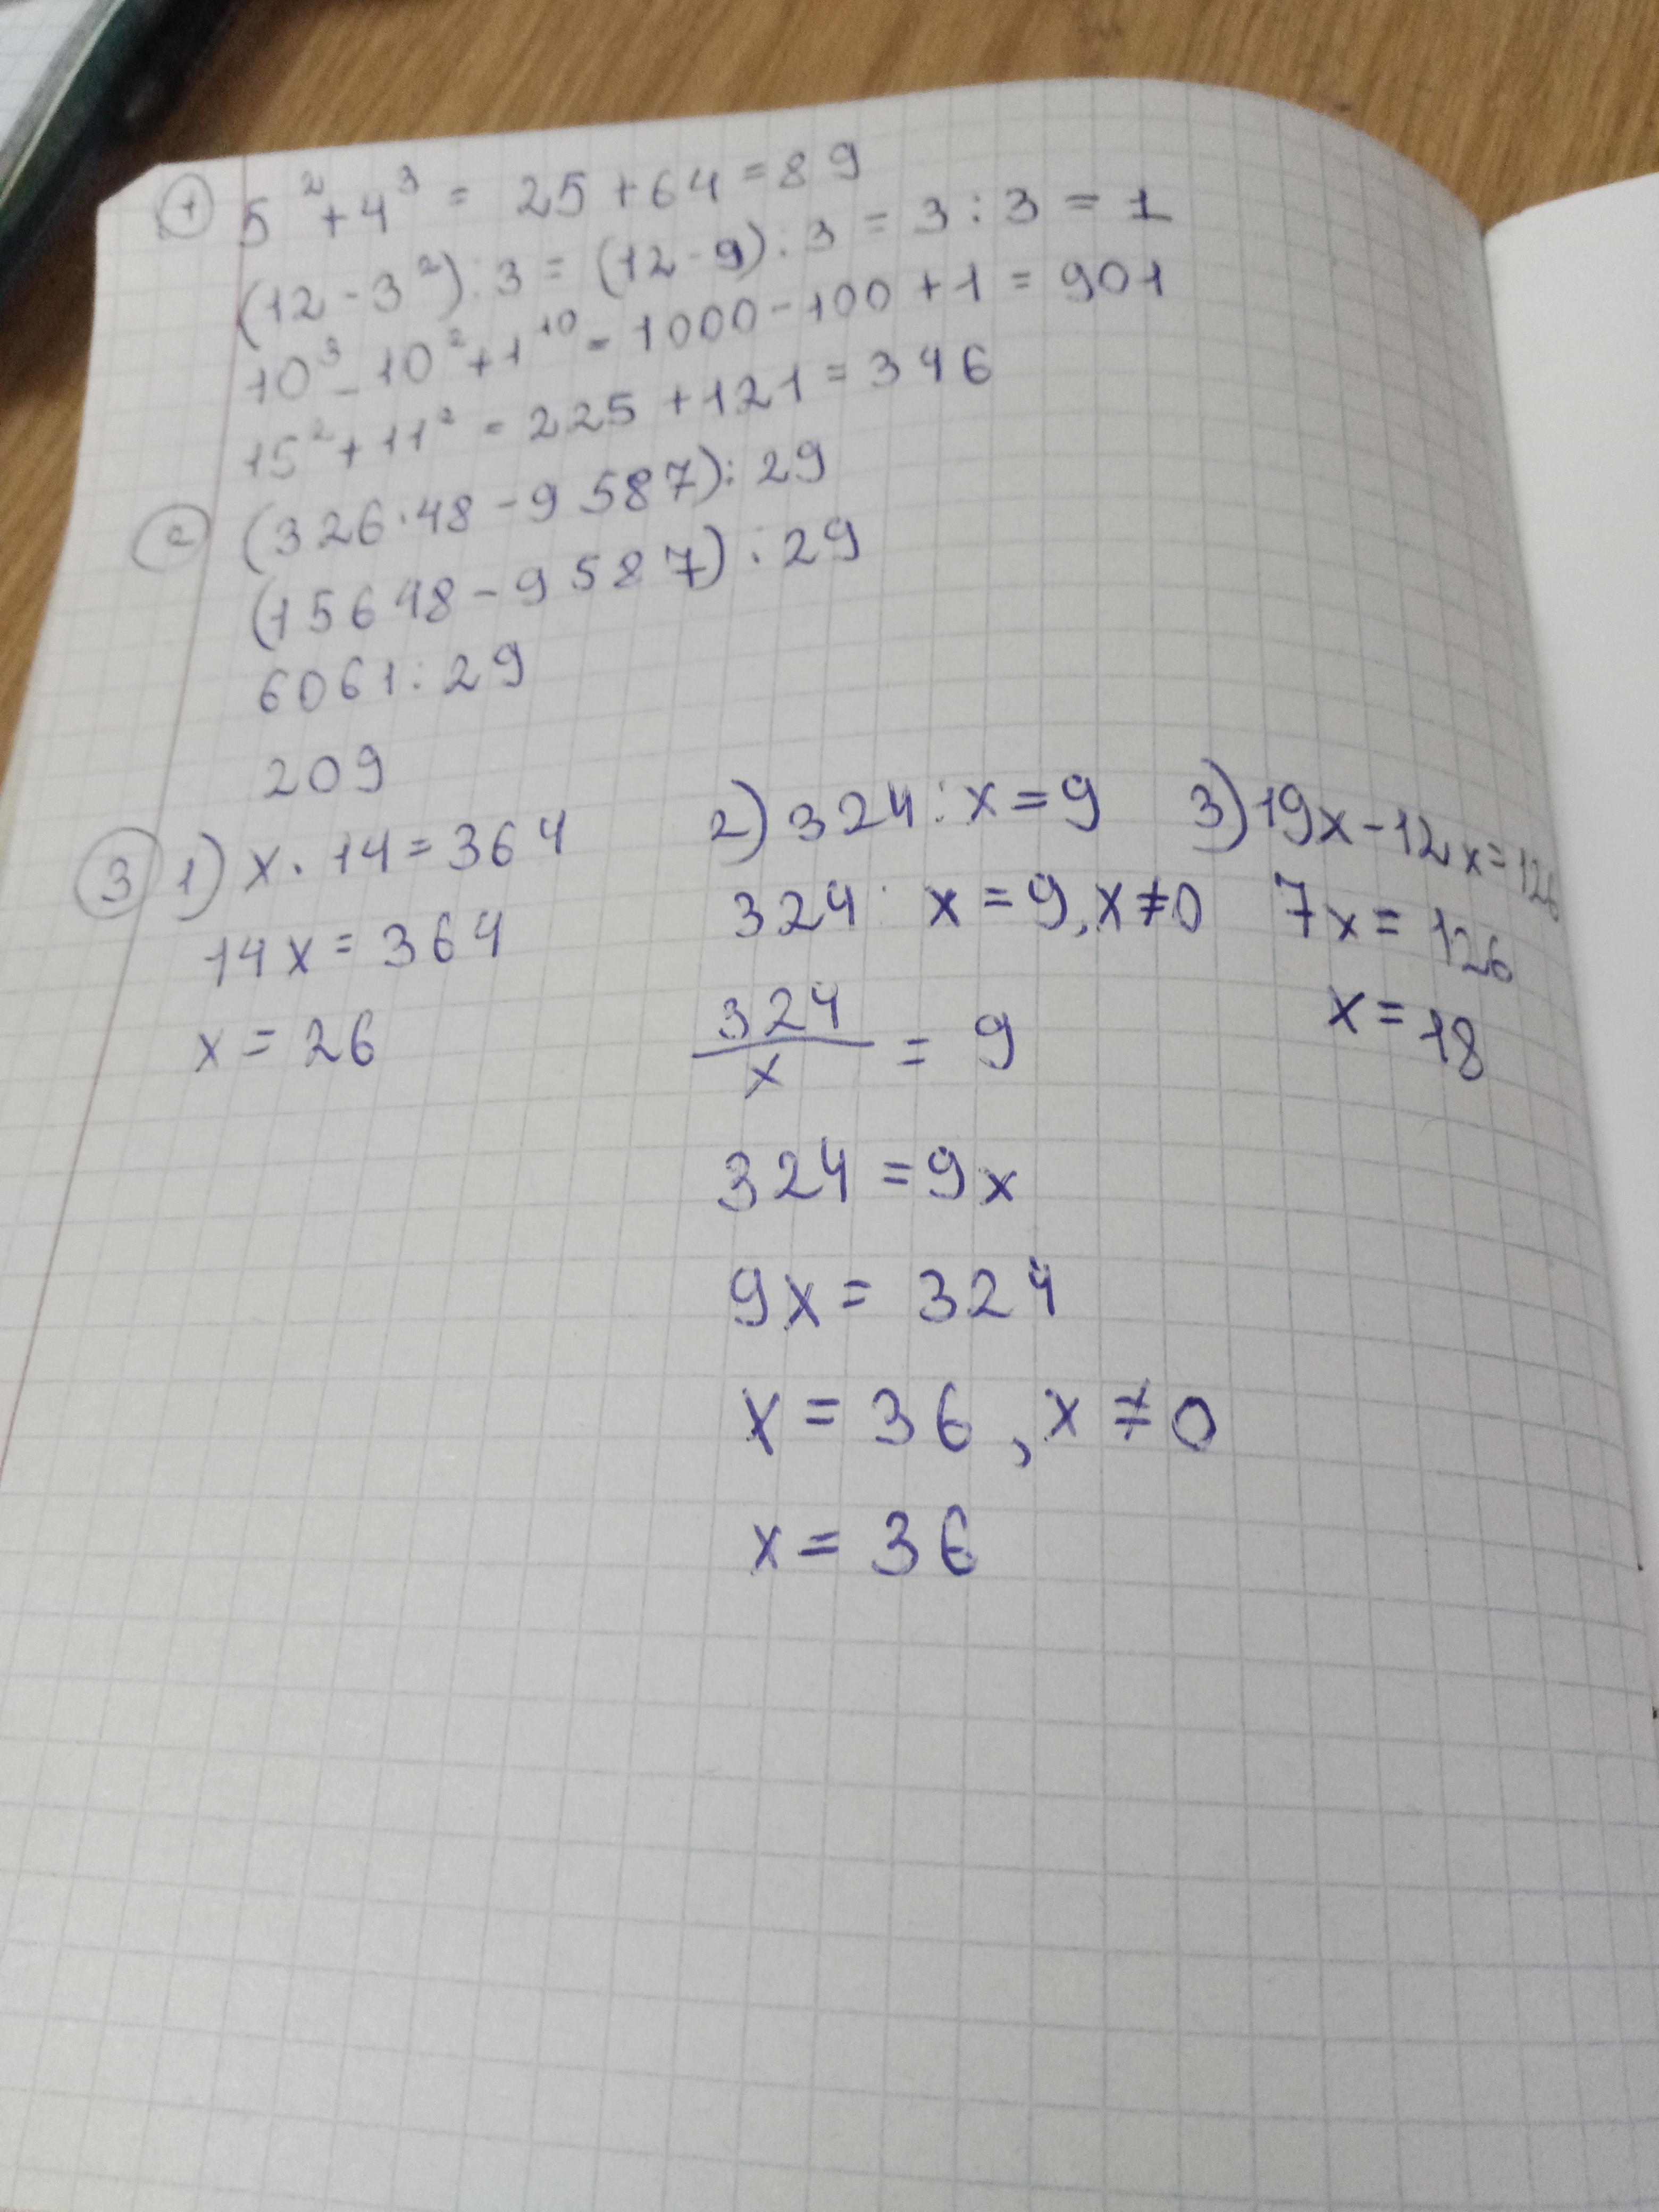 ① 5² + 4³ = 25 + 64 = 89
(12 - 3²) : 3 = (12 - 9) : 3 = 3 : 3 = 1
10³ - 10² + 1¹⁰ = 1000 - 100 + 1 = 901
15² + 11² = 225 + 121 = 346
② (326 · 48 - 9 587) : 29
(15648 - 9 587) : 29
6061 : 29
209
③ 1) x · 14 = 364
14x = 364
x = 26
2) 324 : x = 9
324 : x = 9, x ≠ 0
324
x
= 9
324 = 9x
9x = 324
x = 36, x ≠ 0
x = 36
3) 19x - 12x = 126
7x = 126
x = 18